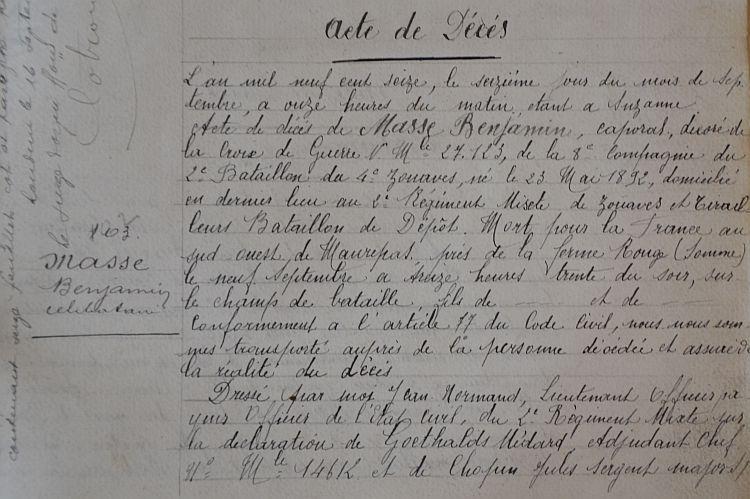 Acte de Décés
L'an mil neuf cent seize, le seizième jour du mois de Sep-
tembre, a onze heures du matin, etant a Suzanne
Acte de décès de Masse Benjamin, caporal, décoré de
la Croix de Guerre N° Mle 27.123, de la 8e Compagnie du
2e Bataillon du 4e Zouaves, né le 23 Mai 1892, domicilié
en dernier lieu au 2e Régiment Mixte de Zouaves et Tirail
leurs Bataillon de Dépôt. Mort pour la France au
sud ouest de Maurepas, près de la ferme Rouge (Somme)
le neuf Septembre a heures trente du soir, sur
le champs de bataille, fils de — et de
Conformement a l'article 77 du Code Civil, nous nous som
mes transporté auprès de la personne décédée et assuré de
la réalité du décès
Dressé, par moi, Jean Normand, Lieutenant Officier pa
yeur Officier de l'Etat Civil, du 2e Régiment Mixte sur
la declaration de Goethalds Médard, Adjudant Chef
N° Mle 1461K et de Chopin Jules Sergent major
163.
Masse
Benjamin
celibataire